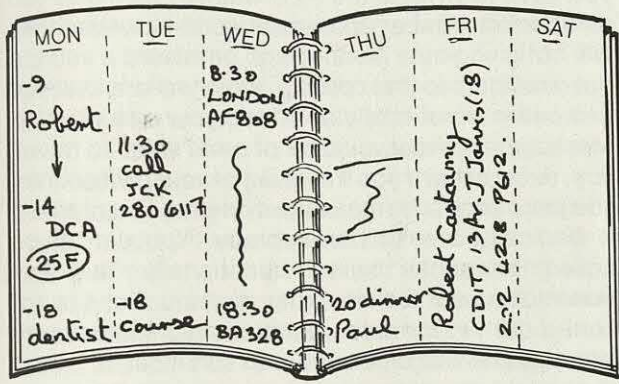 MON
-9
Robert
-14
DCA
25F
-18
dentist
TUE
11.30
call
JCK
280 6117
-18
Course
WED
8.30
LONDON
AF808
18.30
BA328
THU
20 dinner
Paul
FRI
Robert Castagny
CDIT 3A. J Jaurès (18)
222 2218 P612
SAT